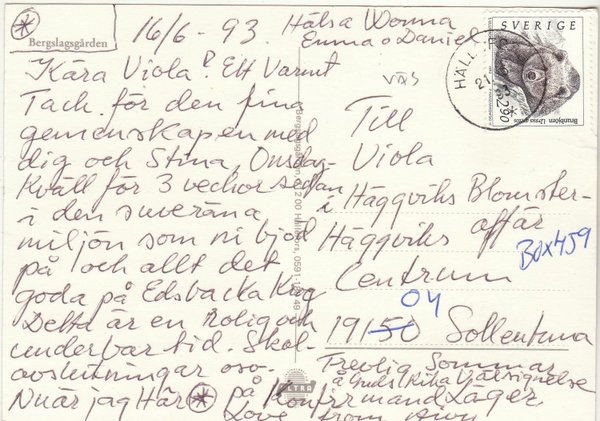 16/6 - 93. Hälsa Wonna
Emma o Daniel
Bergslagsgården
Kära Viola! Ett Varmt
Tack för den fina
gemenskapen med
dig och Stina, Onsdag-
Kväll för 3 veckor sedan
i den suveräna
miljön som ni bjöd
på och allt det
goda på Edsbacka Krog
Detta är en Rolig och
underbar tid. Skol-
avslutningar osv.
Nu är jag Här på Konfirmand Läger
Love from
Trevlig Sommar
å Guds Rika Välsignelse
VÄS
Till
Viola
i Häggviks Blomster-
affär
Häggviks
Centrum
Box 459
04
19150 Sollentuna
SVERIGE
290
Brunbjörn Ursus arctos
HÄLL
Bergslagsgården